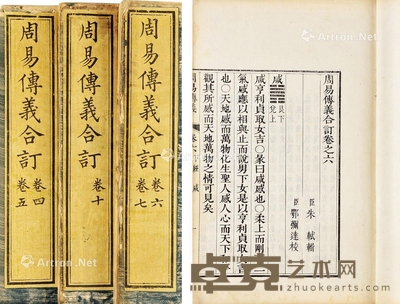 周易傳義合訂
卷四
卷五
周易傳義合訂
卷十
周易傳義合訂
卷六
卷七
周易傳義合訂卷之六
臣 朱軾輯
臣 鄂彌達校
咸 艮下 兌上
咸亨利貞取女吉〇彖曰咸感也〇柔上而剛
氣感應以相與止而說男下女是以亨利貞取
也〇天地感而萬物化生聖人感人心而天下
觀其所感而天地萬物之情可見矣
Artron.Net
卓克艺术网
www.zhuokearts.com